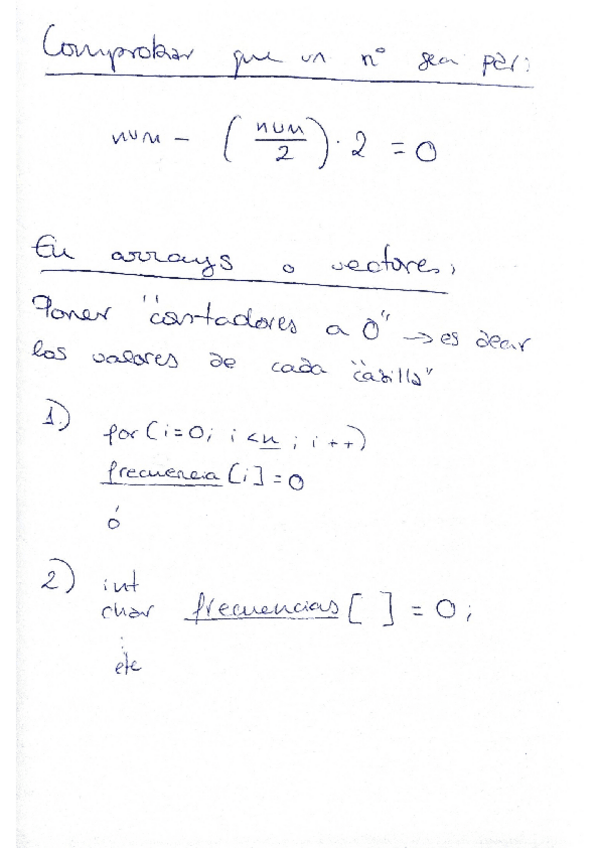 Comprobar que un nº sea par:
num - (num/2) · 2 = 0
En arrays o vectores:
Poner "contadores a 0" → es decir
los valores de cada "casilla"
1) for (i=0; i<n; i++)
frecuencia[i]=0
ó
2) int
char frecuencias[ ] = 0;
:
etc